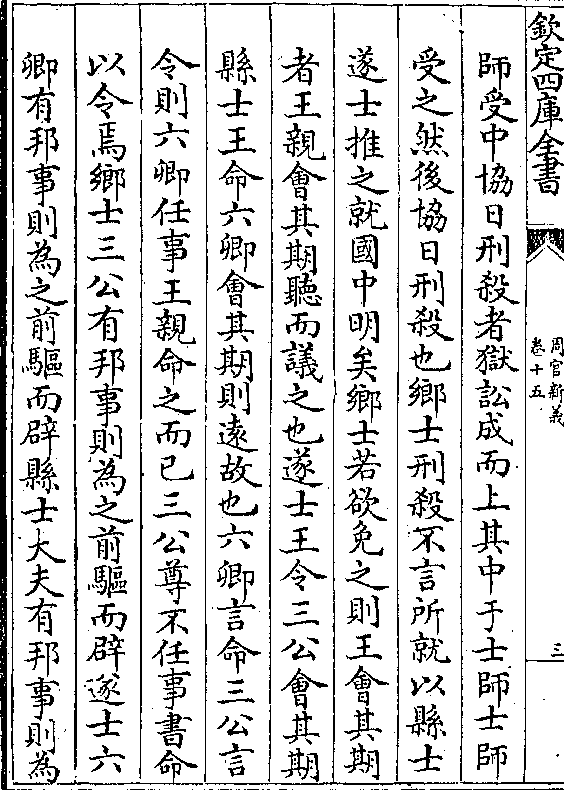 欽定四庫全書
周官新義
卷十五
三
師受中協日刑殺者獄訟成而上其中于士師士師
受之然後協日刑殺也鄉士刑殺不言所就以縣士
遂士推之就國中明矣鄉士若欲免之則王會其期
者王親會其期聽而議之也遂士王令三公會其期
縣士王命六卿會其期則遠故也六卿言命三公言
令則六卿任事王親命之而已三公尊不任事書命
以令焉鄉士三公有邦事則為之前驅而辟遂士六
卿有邦事則為之前驅而辟縣士大夫有邦事則為